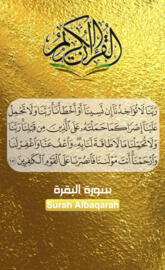 القرآن الكريم
رَبَّنَا لَا تُؤَاخِذْنَا إِن نَّسِينَا أَوْ أَخْطَأْنَا رَبَّنَا وَلَا تَحْمِلْ
عَلَيْنَا إِصْرًا كَمَا حَمَلْتَهُ عَلَى الَّذِينَ مِن قَبْلِنَا رَبَّنَا
وَلَا تُحَمِّلْنَا مَا لَا طَاقَةَ لَنَا بِهِ وَاعْفُ عَنَّا وَاغْفِرْ لَنَا
وَارْحَمْنَا أَنتَ مَوْلَانَا فَانصُرْنَا عَلَى الْقَوْمِ الْكَافِرِينَ
سورة البقرة
Surah Albaqarah